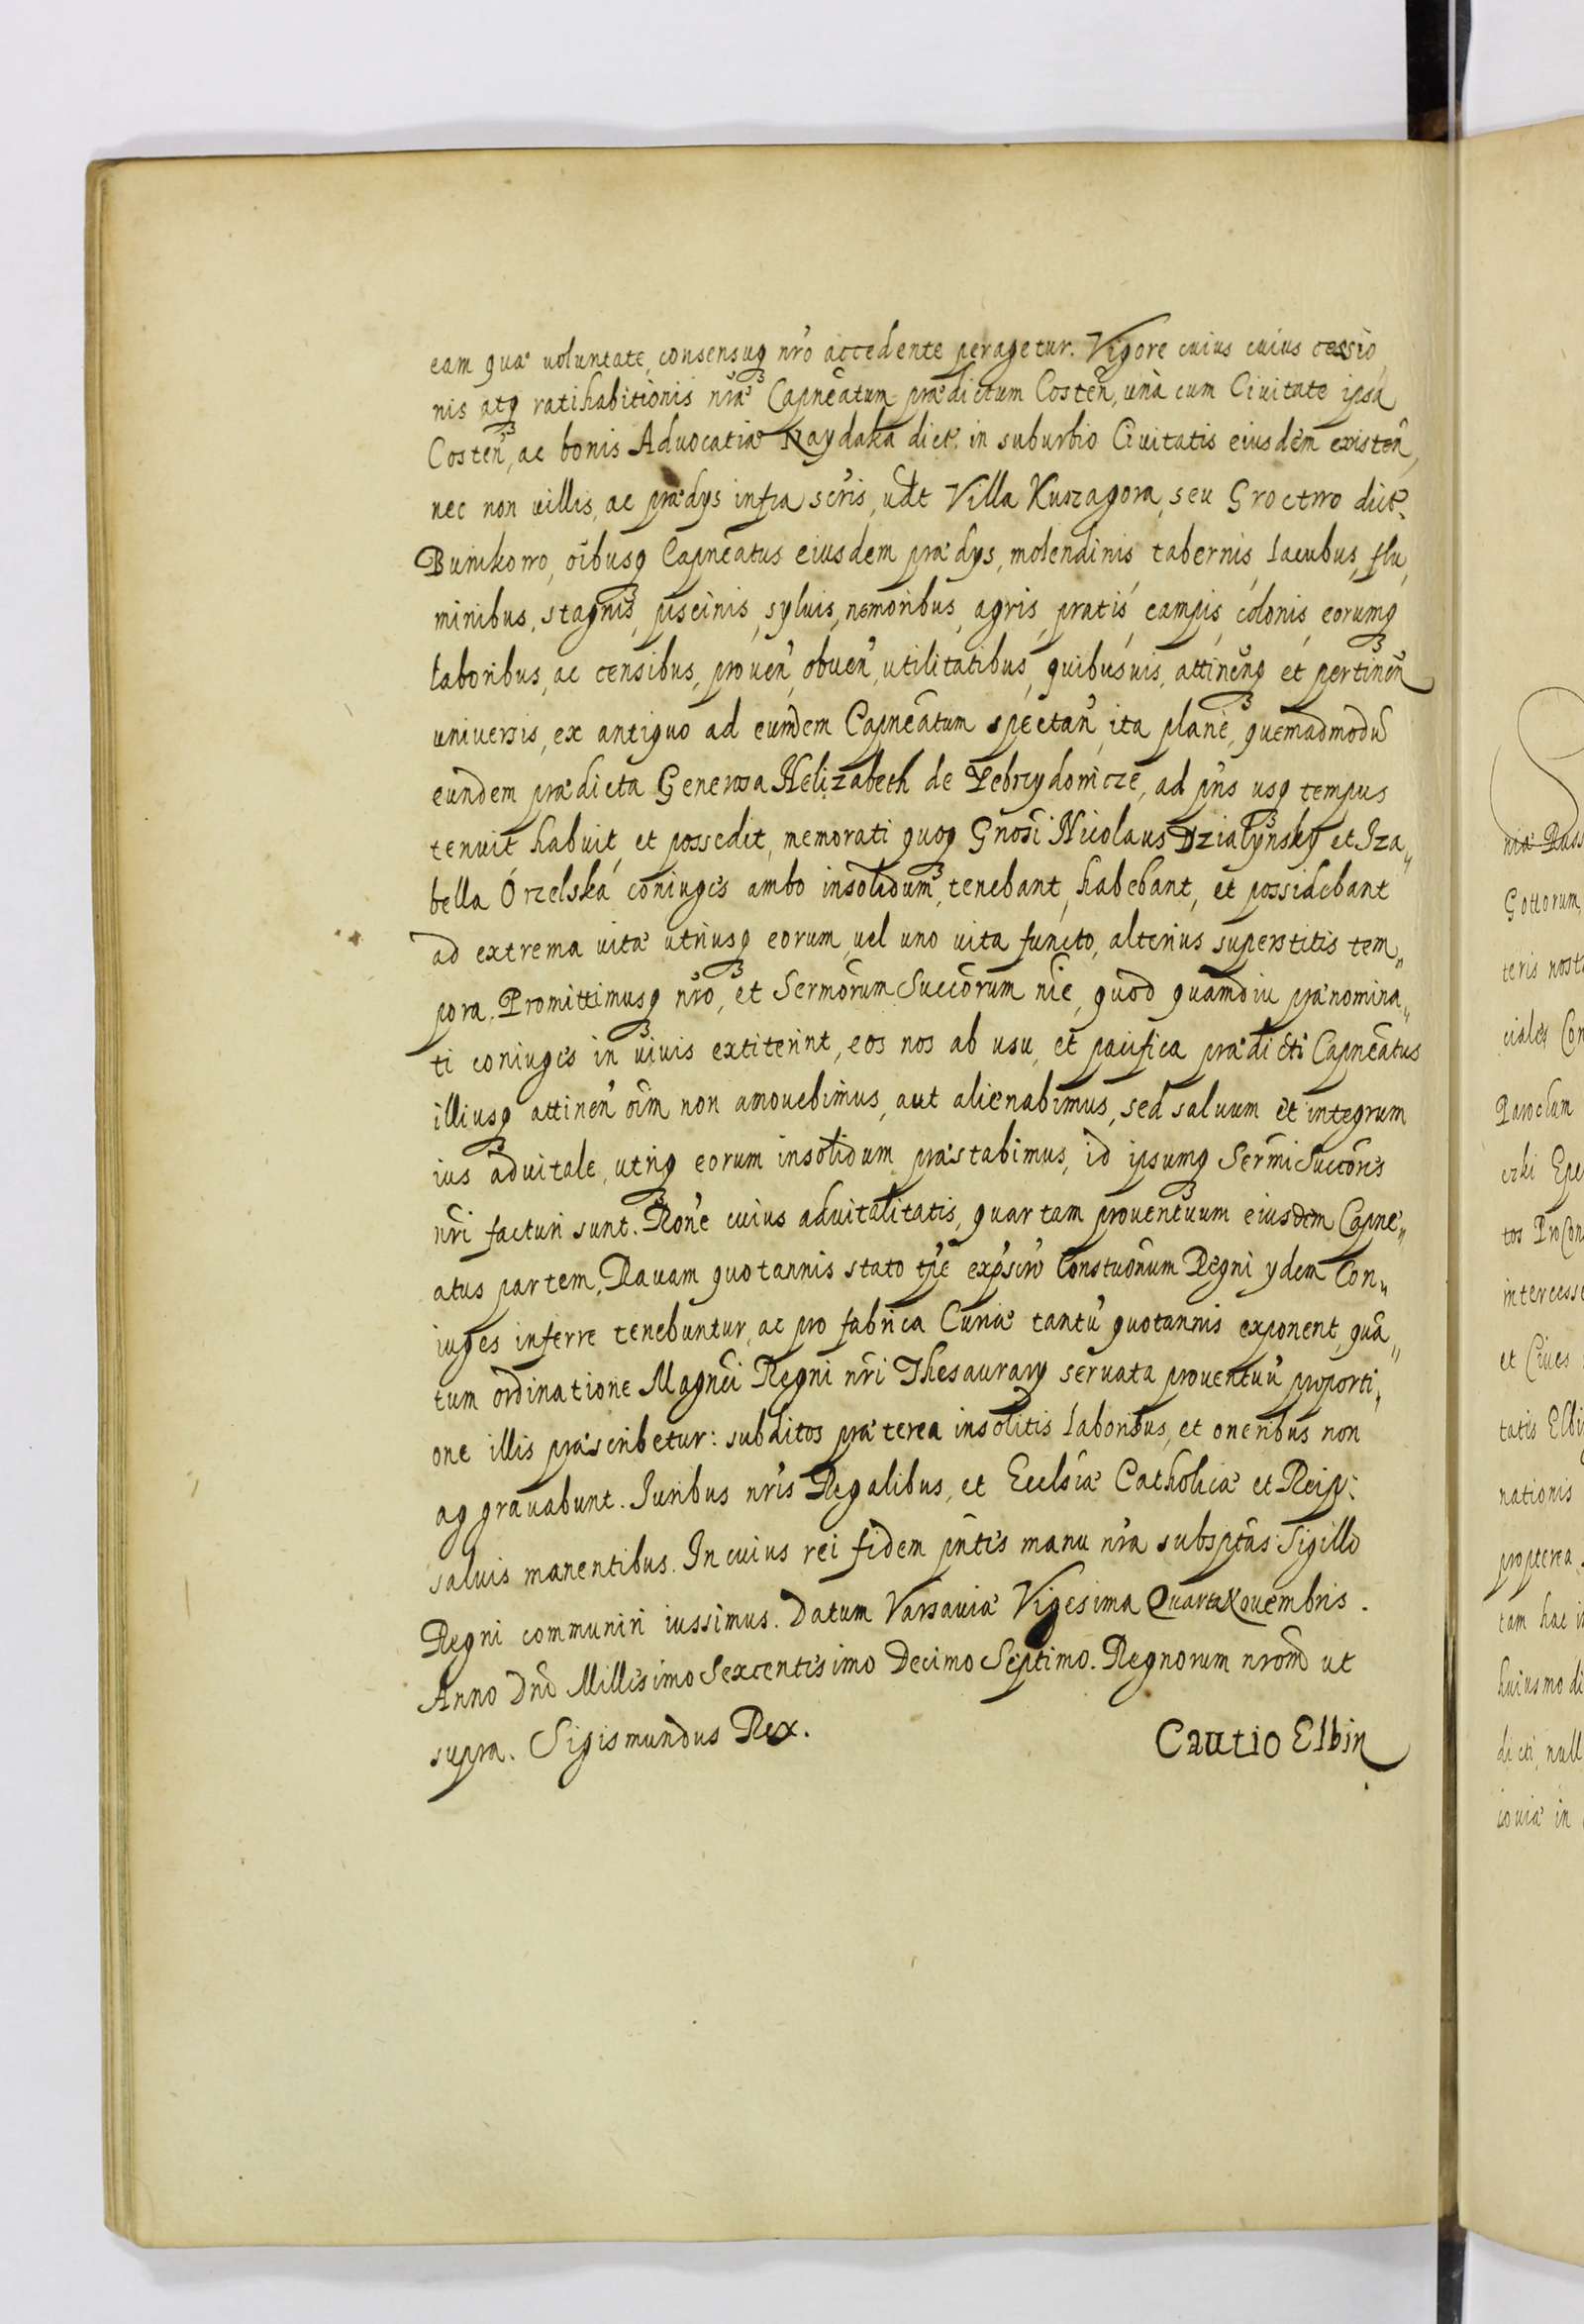 eam quæ voluntate, consensuq₃ nr̃o accedente peragetur. Vigore cuius cuius cessio,
nis atq₃ ratihabitionis nr̃æ Capneatum prædictum Costeñ, unà cum Ciuitate ipsa
Costeñ, ac bonis Aduocatiæ Naydaka dict: in suburbio Ciuitatis eiusdem existeñ,
nec non uillis, ac prædys infra scr̃is, ud̃t Villa Kuszagora, seu Groctwo dict:
Bunikowo, oĩbusq₃ Capneatus eiusdem prædys, molendinis tabernis, lacubus, flu,
minibus, stagnis, piscinis, syluis, nemoribus, agris, pratis, campis, colonis, eorumq₃
laboribus, ac censibus, proueñ, obueñ, utilitatibus, quibusuis, attineñq₃ et pertineñ
uniuersis, ex antiquo ad eundem Capneatum spectañ, ita planè, quemadmodũ
eundem prædicta Generosa Helizabeth de Zebrzydowicze, ad pñs usq₃ tempus
tenuit habuit, et possedit, memorati quoq₃ Gnosi Nicolaus Dzialynsky et Iza„
bella Orzelska coniuges ambo insolidum, tenebant, habebant, et possidebant
ad extrema uitæ utriusq₃ eorum, uel uno uita functo, alterius superstitis tem„
pora. Promittimusq₃ nr̃o, et Sermõrum Succõrum nĩe, quod quamdiu prænomina„
ti coniuges in uiuis extiterint, eos nos ab usu, et pacifica prædicti Capneatus
illiusq₃ attineñ oĩm non amouebimus, aut alienabimus, sed saluum et integrum
ius aduitale, utriq₃ eorum insolidum præstabimus, id ipsumq₃ Sermi Succõres
nr̃i facturi sunt. Rõne cuius aduitalitatis, quartam prouentuum eiusdem Capne„
atus partem, Rauam quotannis stato tp̃e exp̃scr̃o Constuõnum Regni ydem Con„
iuges inferre tenebuntur, ac pro fabrica Curiæ tantũ quotannis exponent, quã„
tum ordinatione Magnci Regni nr̃i Thesaurary seruata prouentuũ proporti„
one illis præscribetur: subditos præterea insolitis laboribus, et oneribus non
aggrauabunt. Iuribus nr̃is Regalibus, et Ecclsiæ Catholicæ et Reip:
saluis manentibus. In cuius rei fidem pñtes manu nr̃a subsptas Sigillo
Regni communiri iussimus. Datum Varsauiæ Vigesima Quarta Nouembris.
Anno Dñi Millesimo Sexcentesimo Decimo Septimo. Regnorum nrõm ut
supra. Sigismundus Rex.
Cautio Elbin